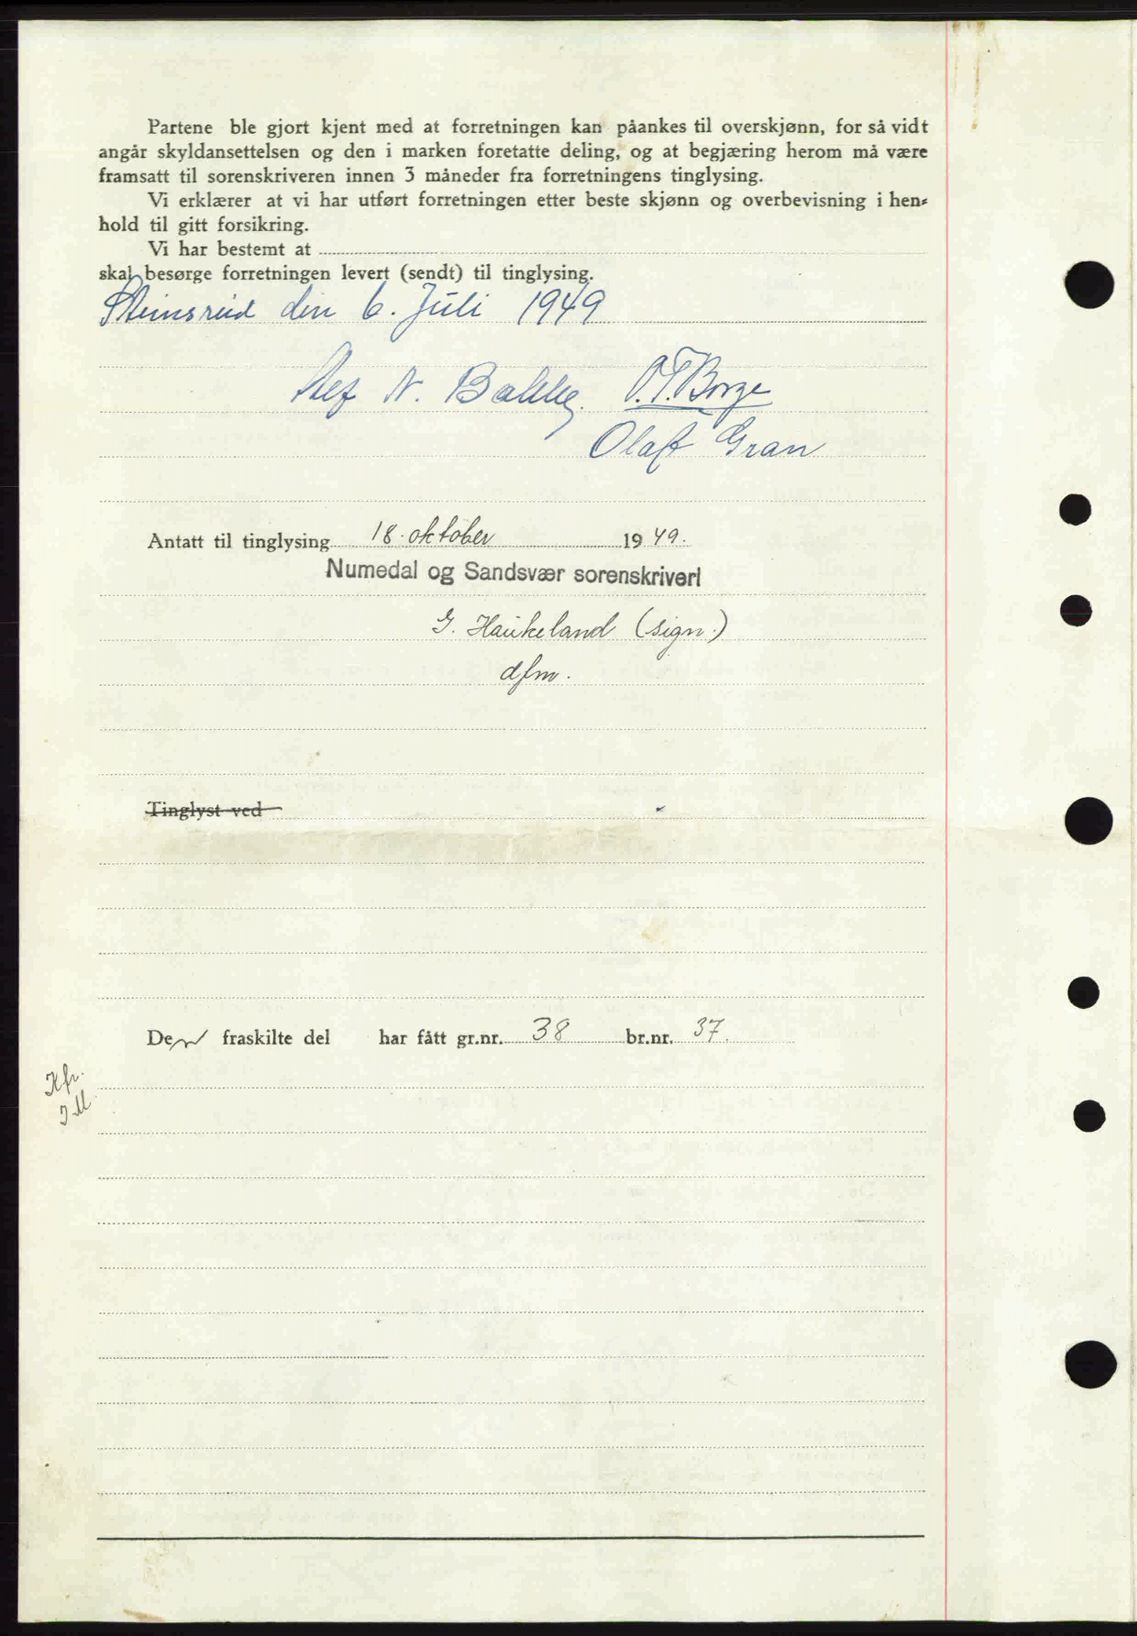 Partene ble gjort kjent med at forretningen kan påankes til overskjønn, for så vidt
angår skyldansettelsen og den i marken foretatte deling, og at begjæring herom må være
framsatt til sorenskriveren innen 3 måneder fra forretningens tinglysing.
Vi erklærer at vi har utført forretningen etter beste skjønn og overbevisning i hen-
hold til gitt forsikring.
Vi har bestemt at
skal besørge forretningen levert (sendt) til tinglysing.
den 6. Juli 1949
N. Bakke. O.T. Borge
Olaf Gran
Antatt til tinglysing 18. oktober 1949.
Numedal og Sandsvær sorenskriveri
G. Haukeland (sign.)
dfm.
Tinglyst ved
Den fraskilte del har fått gr.nr. 38 br.nr. 37.
Kfr.